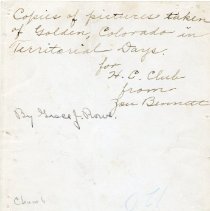 Copies of pictures taken
of Golden, Colorado in
Territorial Days.
for
H. C. Club
from
Zou Bennett
By Grace J. Rowe.
Chumb